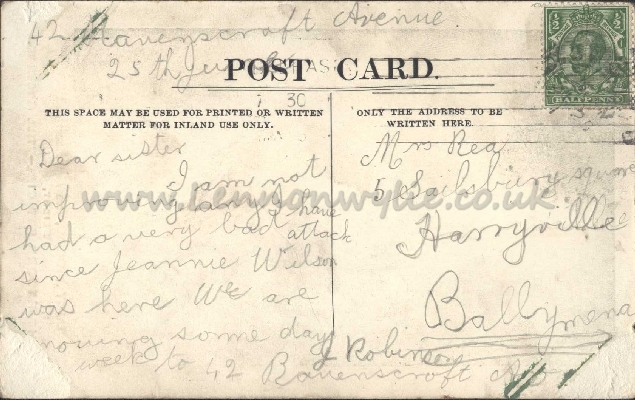 42 Ravenscroft Avenue
25th
POST CARD.
30
THIS SPACE MAY BE USED FOR PRINTED OR WRITTEN
MATTER FOR INLAND USE ONLY.
Dear sister
I am not
improving any I have
had a very bad attack
since Jeannie Wilson
was here We are
moving some day
week to 42 Ravenscroft Av
J Robinson
ONLY THE ADDRESS TO BE
WRITTEN HERE.
Mrs Rea
5 Salsbury square
Harryville
Ballymena
HALFPENNY
www.lennonwylie.co.uk